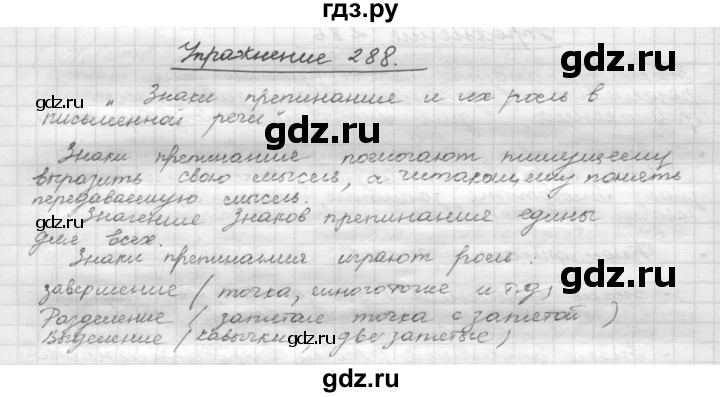 гдз.ру
Упражнение 288.
„ Знаки препинание и их роль в
письменной речи"
Знаки препинание помогают пишущему
выразить свою мысль, а читающему понять
передаваемую мысль.
Значение знаков препинание едины
для всех.
Знаки препинания играют роль:
завершение (точка, многоточие и т.д,
Разделение (запетае точка с запетой)
Выделение (кавычки, две запетые)
gdz.ru
gdz.ru
gdz.ru
gdz.ru
gdz.ru
gdz.ru
gdz.ru
gdz.ru